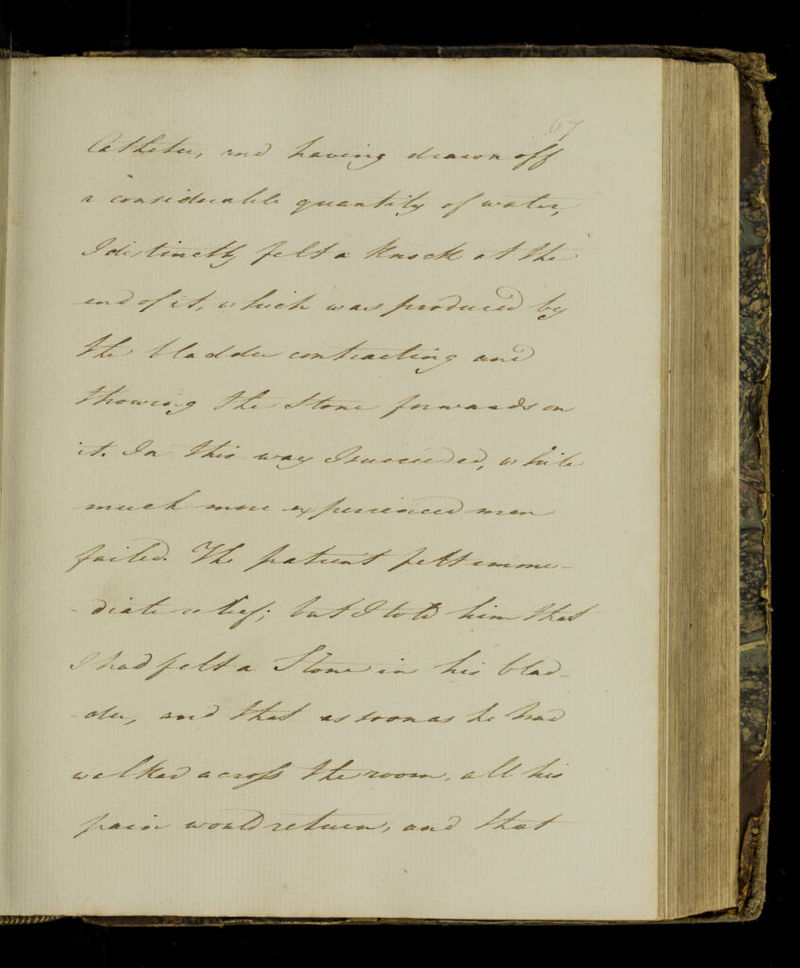 67
Catheter, and having drawn off
a considerable quantity of water,
I distinctly felt a knock at the
end of it, which was produced by
the bladder contracting and
throwing the Stone forwards on
it. In this way I succeeded, while
much more experienced men
failed. The patient felt imme-
-diate relief; but I told him that
I had felt a Stone in his blad-
-der, and that as soon as he had
walked across the room, all his
pain would return, and that